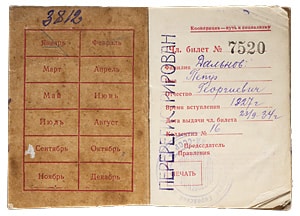 3812
Январь Февраль
Март Апрель
Май Июнь
Июль Август
Сентябрь Октябрь
Ноябрь Декабрь
ПЕРЕРЕГИСТРИРОВАН
Кооперация—путь к социализму
Чл. билет № 7520
Фамилия Дальнов
Имя Петр
Отчество Георгиевич
Время вступления 1927 г
Дата выдачи чл. билета
Коллектив № 16
Председатель
Правления
ПЕЧАТЬ